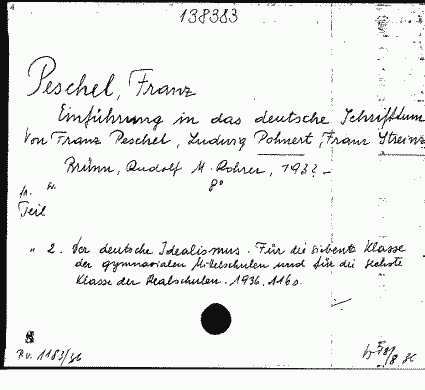 138383
Peschel, Franz
Einführung in das deutsche Schrifttum
Von Franz Peschel, Ludwig Pohnert, Franz Streinz
Brünn, Rudolf M. Rohrer, 193? -
8°
Teil
" 2. Der deutsche Idealismus. Für die siebente Klasse
der gymnasialen Mittelschulen und für die sechste
Klasse der Realschulen. 1936. 116 S.
R.v. 1183/36